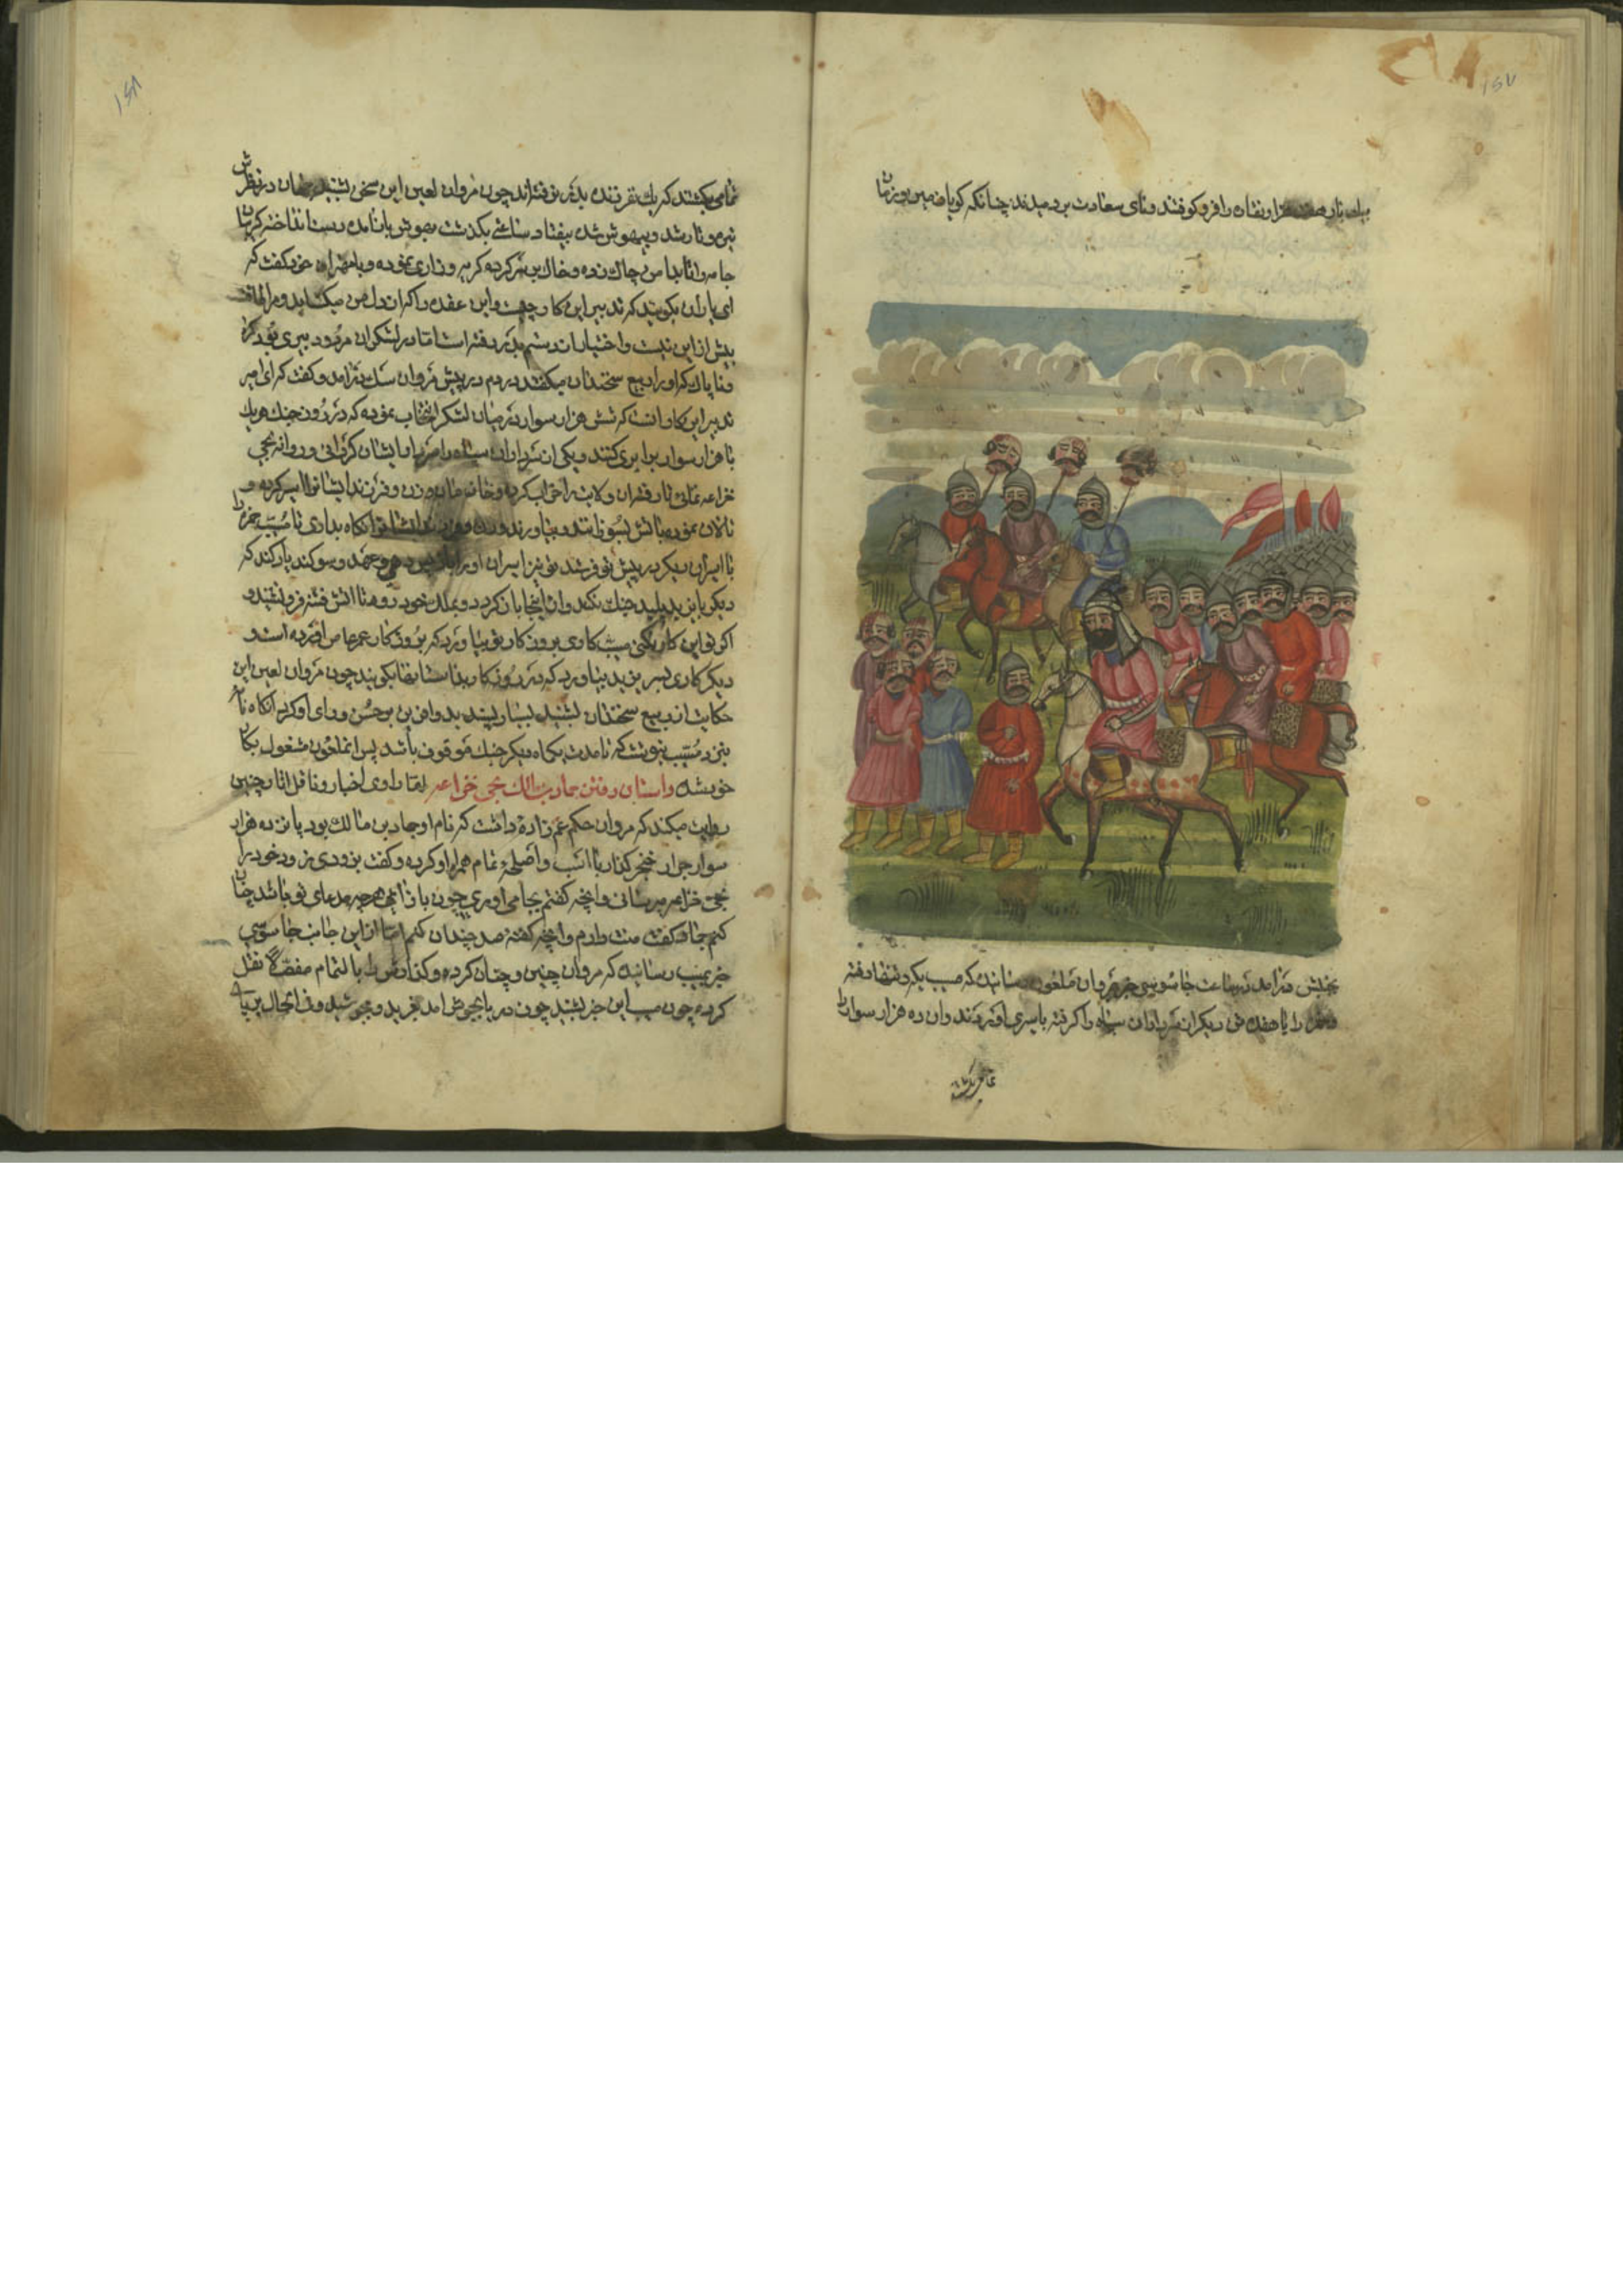 ۱۵۷
هزار نقاره را فرو کوفتند و نای سعادت بر دمیدند چنانکه کویا زمین و زمان
بجنبش درآمد در ساعت جاسوسی خبر بمروان ملعون رسانید که مسیب یکه و تنها رفته
را با هفده تن دیکر از سرداران سپاه را کرفته باسیری آوردند و آن ده هزار سوار را
تمامی بکشتند
۱۵۸
تمامی بکشتند که یک نفر زنده بدر نرفته‌اند چون مروان لعین این سخن بشنید جهان در نظرش
تیره و تار شد و بیهوش شده بیفتاد ساعتی بکذشت بهوش باز آمده دست انداخته کریبان
جامه را تا بدامن چاک زده و خاک بر سر کرده کریه و زاری نموده و با همراهان خود کفت که
ای یاران بکویید که تدبیر این کار چیست و این عقده را که از دل من میکشاید و مرا طاقت
بیش از این نیست و اختیار از دستم بدر رفته است اما در لشکر او مردود پیری بود کمراه
و ناپاک که او را ربیع سخندان میکفتند در دم در پیش مروان سک درآمد و کفت که ای امیر
تدبیر این کار آنست که شش هزار سوار در میان لشکر انتخاب نموده که در روز جنک هر یک
با هزار سوار برابری کنند و یکی از سرداران سپاه را سردار ایشان کردانی و روانه بحی
خزاعه نمائی تا رفته آن ولایت را خراب کرده و خانه‌مان و زن و فرزند ایشان را اسیر کرده و
تالان نموده باتش بسوزانند و بیاورند و زن و فرزند ایشان را نکاه بداری تا مسیب
با اسیران دیکر در پیش تو فرستد تو نیز اسیران او را باز پس دهی و عهد و سوکند یاد کند که
دیکر با یزید پلید جنک نکند و از اینجا باز کردد و بملک خود رود تا آتش فتنه فرو نشیند و
اکر تو این کار نکنی مسیب کاری بروزکار تو بیاورد که بروزکار عمر عاص آورده است و
دیکر کاری بسر یزید بیاورد که در روزکار بداستانها بکویند چون مروان لعین این
حکایت از ربیع سخندان بشنید بسیار پسندید و آفرین بر حسن و رای او کرد آنکاه نامه
بنزد مسیب بنوشت که تا مدت یکماه دیکر جنک موقوف باشد پس آنملعون مشغول بکار
خویش شد داستان رفتن جادبن مالک بحی خزاعه اما راوی اخبار و ناقل آثار چنین
روایت میکند که مروان حکم عم زاده داشت که نام او جادبن مالک بود پانزده هزار
سوار جرار خنجر کذار با اسب و اصلحهٔ تمام همراه او کرده و کفت بزودی زود خود را
بحی خزاعه برسانی و آنچه کفتم بجا می‌آوری چون باز آیی هر چه مدعای تو باشد چنان
کنم جاد کفت منت دارم و آنچه کفتهٔ صد چندان کنم اما از این جانب جاسوسی
خبر بمسیب رسانید که مروان چنین و چنان کرده و کذارش را بالتمام مفصلا نقل
کرده چون مسیب این خبر بشنید چون دریا بجوش آمد بغرید و بجوشید و فی الحال برپای